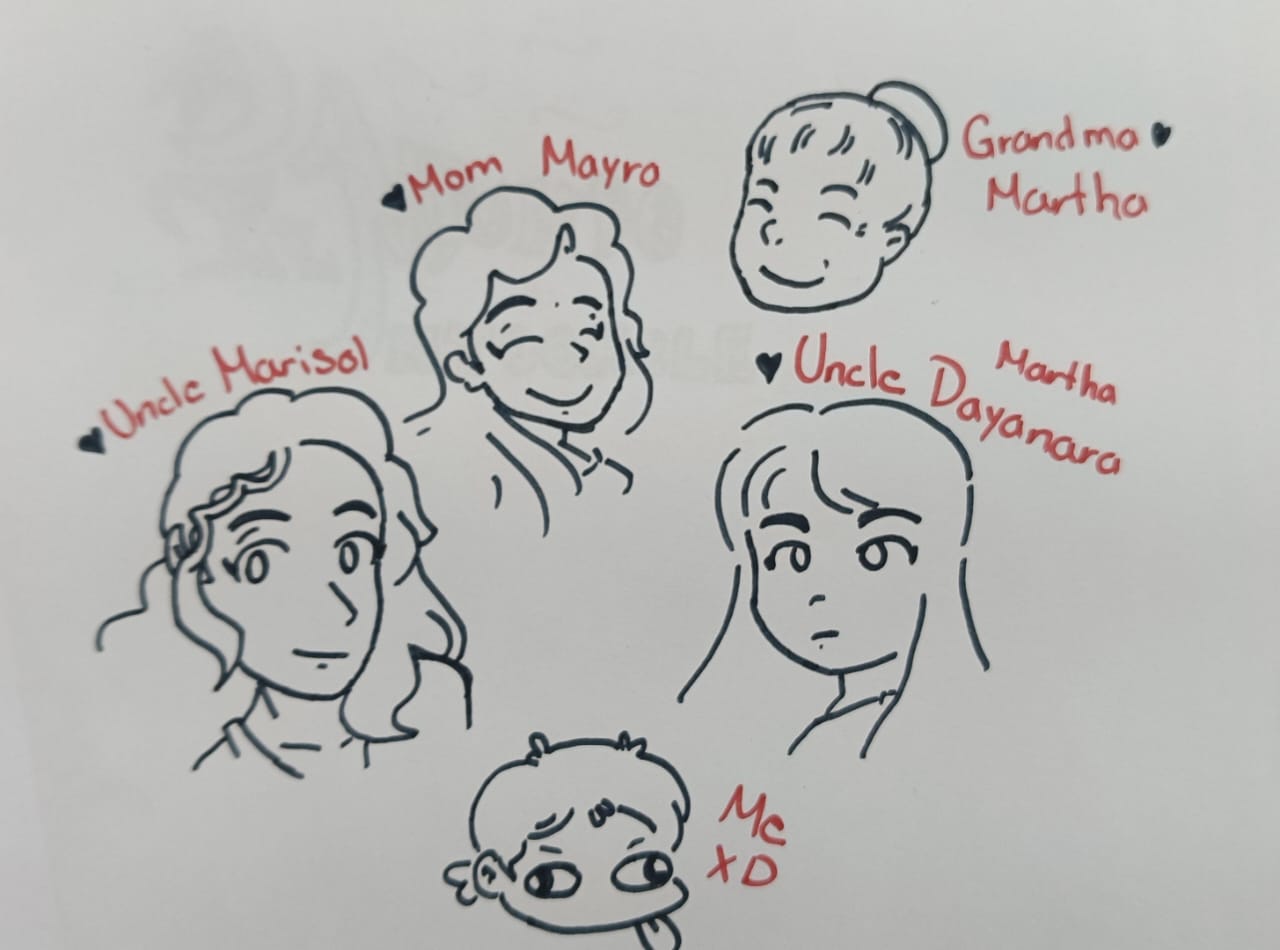 Mom Mayro
Grandma
Martha
Uncle Marisol
Uncle Martha
Dayanara
Me
XD